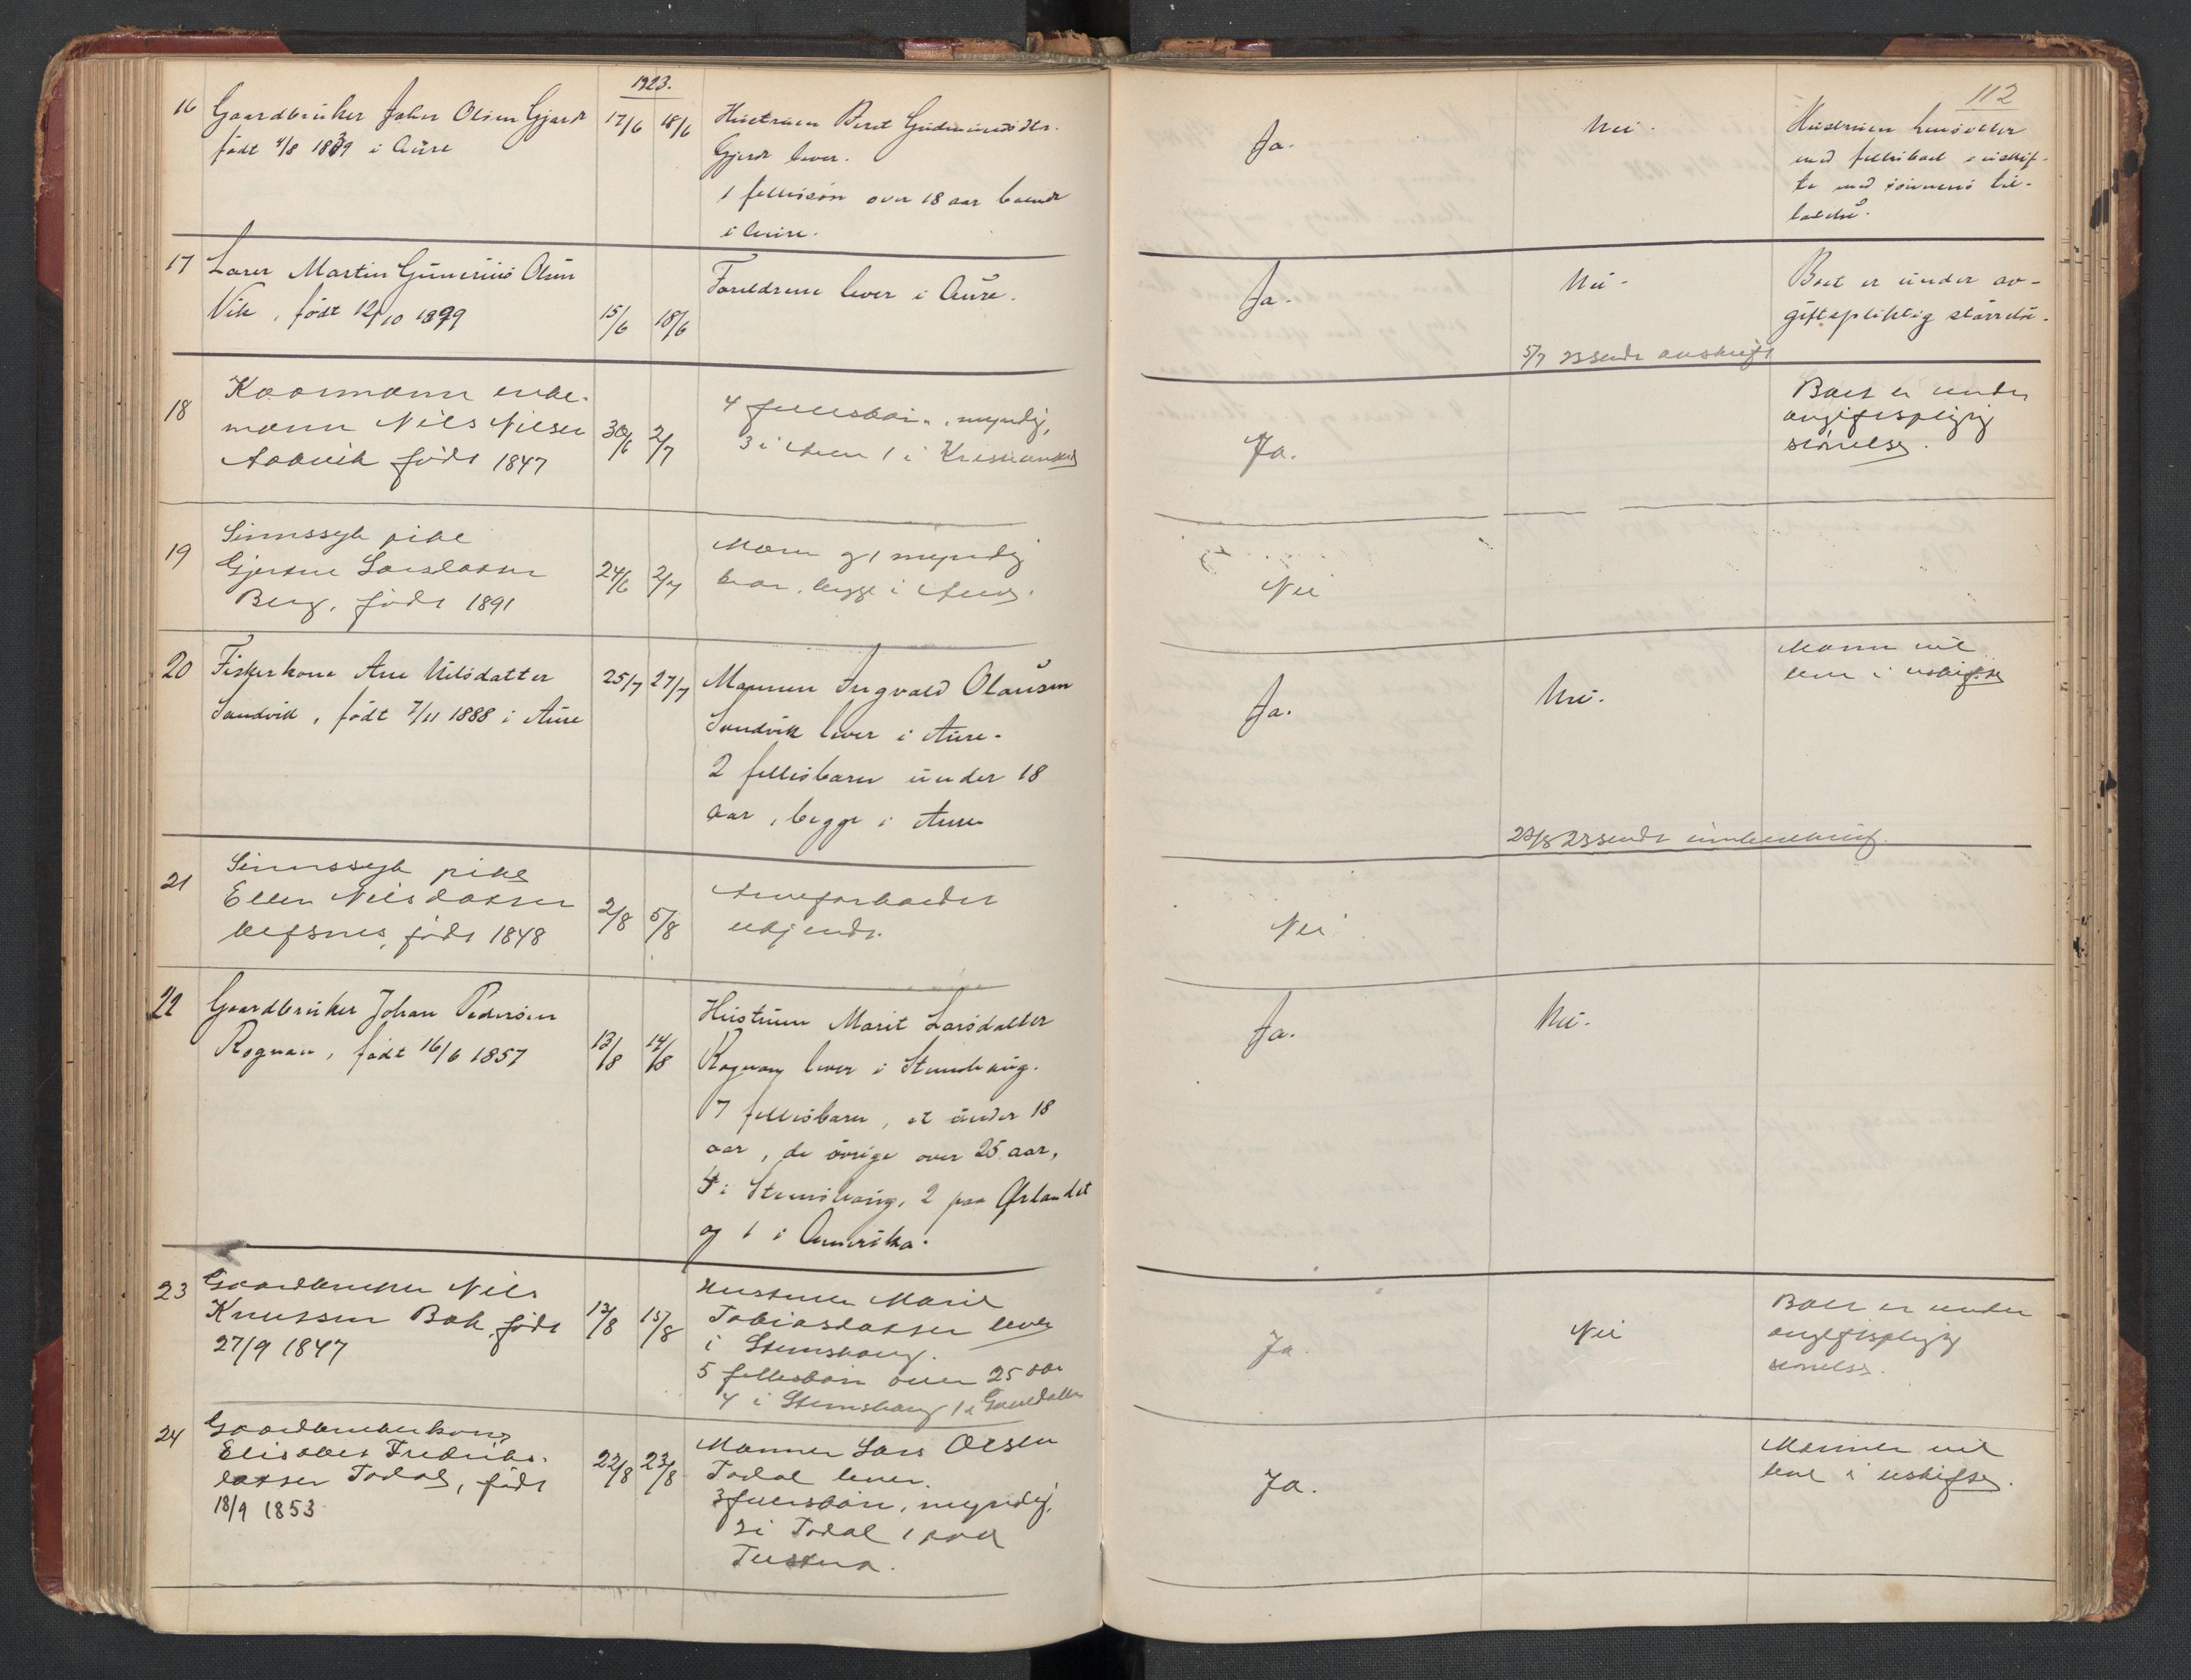 1923.
112
16 Gaardbruker Johan Olsen Gjerde 17/6 18/6 Hustruen Beret Gudmundsdtr. Ja. Nei. Hustruen hensitter
født 4/8 1839 i Aure Gjerde lever. med fellesboet i uskif-
1 fellessøn over 18 aar boende te med sønnens til-
i Aure. latelse.
17 Lærer Martin Gunerius Olsen Foreldrene lever i Aure. Ja. Nei. Boet er under av-
Vik, født 12/10 1899 15/6 18/6 giftspliktig størrelse.
5/7 23 sendt avskrift
18 Kaarmann enke- 4 fellesbørn, myndig, Boet er under
mann Nils Nilsen 30/6 2/7 3 i Aure 1 i Kristiansund Ja. avgiftspligtig
Aakvik født 1847 størrelse.
19 Sinnssyk pike Moren og 1 myndig
Gjertine Larsdatter 24/6 2/7 bror, begge i Aure. Nei
Berg, født 1891
20 Fiskerkone Ane Nilsdatter 25/7 27/7 Mannen Ingvald Olausen Ja. Nei. Mannen vil
Sandvik, født 7/11 1888 i Aure Sandvik lever i Aure. leve i uskifte
2 fellesbarn under 18
aar, begge i Aure
23/8 23 sendt innberetning.
21 Sinnssyk pike
Ellen Nilsdatter 2/8 5/8 Arveforholdet Nei
født 1848 ukjendt.
22 Gaardbruker Johan Pedersen Hustruen Marit Larsdatter Ja. Nei.
Rognan, født 16/6 1857 13/8 14/8 Rognan lever i Stemshaug.
7 fellesbarn, et under 18
aar, de øvrige over 25 aar,
4 i Stemshaug, 2 paa Ørlandet
og 1 i Amerika.
23 Gaardbruker Nils Hustruen Marit Boet er under
Knutsen Bak, født 13/8 15/8 Tobiasdatter lever Ja. Nei avgiftspligtig
27/9 1847 i Stemshaug. størrelse.
5 fellesbørn over 25 aar
4 i Stemshaug 1 i
24 Gaardbrukerkone Mannen Lars Olsen Mannen vil
Elisabet Fredriks- 22/8 23/8 Todal lever. Ja. leve i uskifte.
datter Todal, født 3 fellesbørn, myndig,
18/9 1853 2 i Todal 1 paa
Tustna.